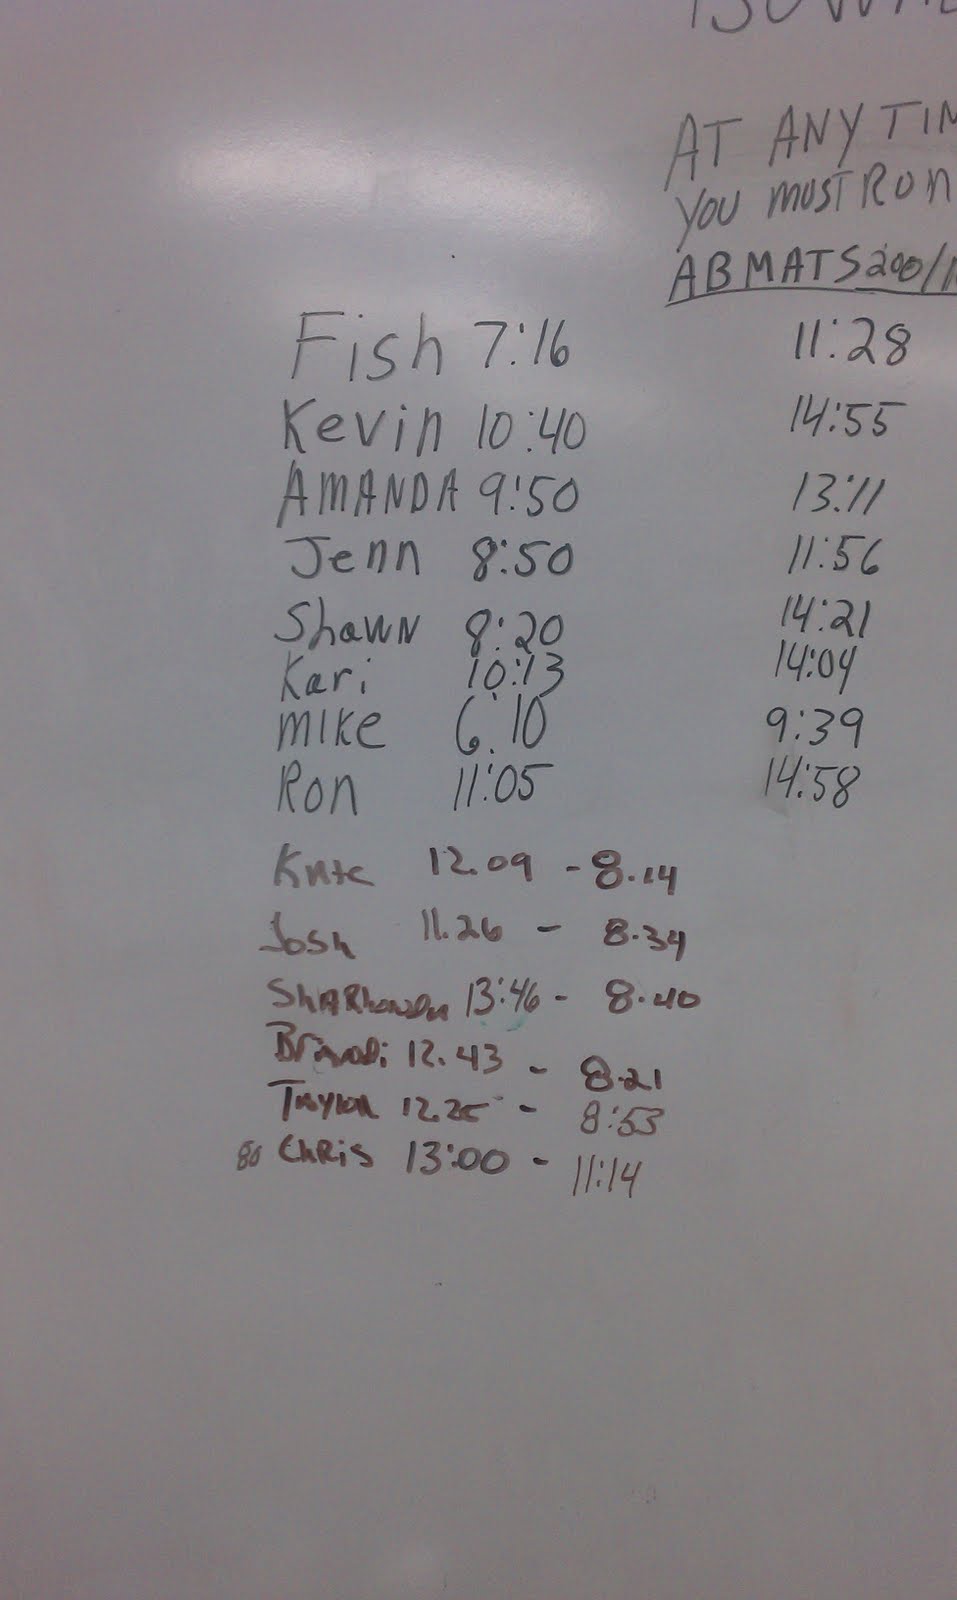 AT ANY TIM
YOU MUST RUN
ABMATS 200/1
Fish 7:16 11:28
Kevin 10:40 14:55
AMANDA 9:50 13:11
Jenn 8:50 11:56
Shawn 8:20 14:21
Kari 10:13 14:04
MIKE 6:10 9:39
Ron 11:05 14:58
Kate 12.09 - 8.14
Josh 11.26 - 8.34
13:46 - 8.40
Brandi 12.43 - 8.21
Taylor 12.25 - 8:53
80 Chris 13:00 - 11:14